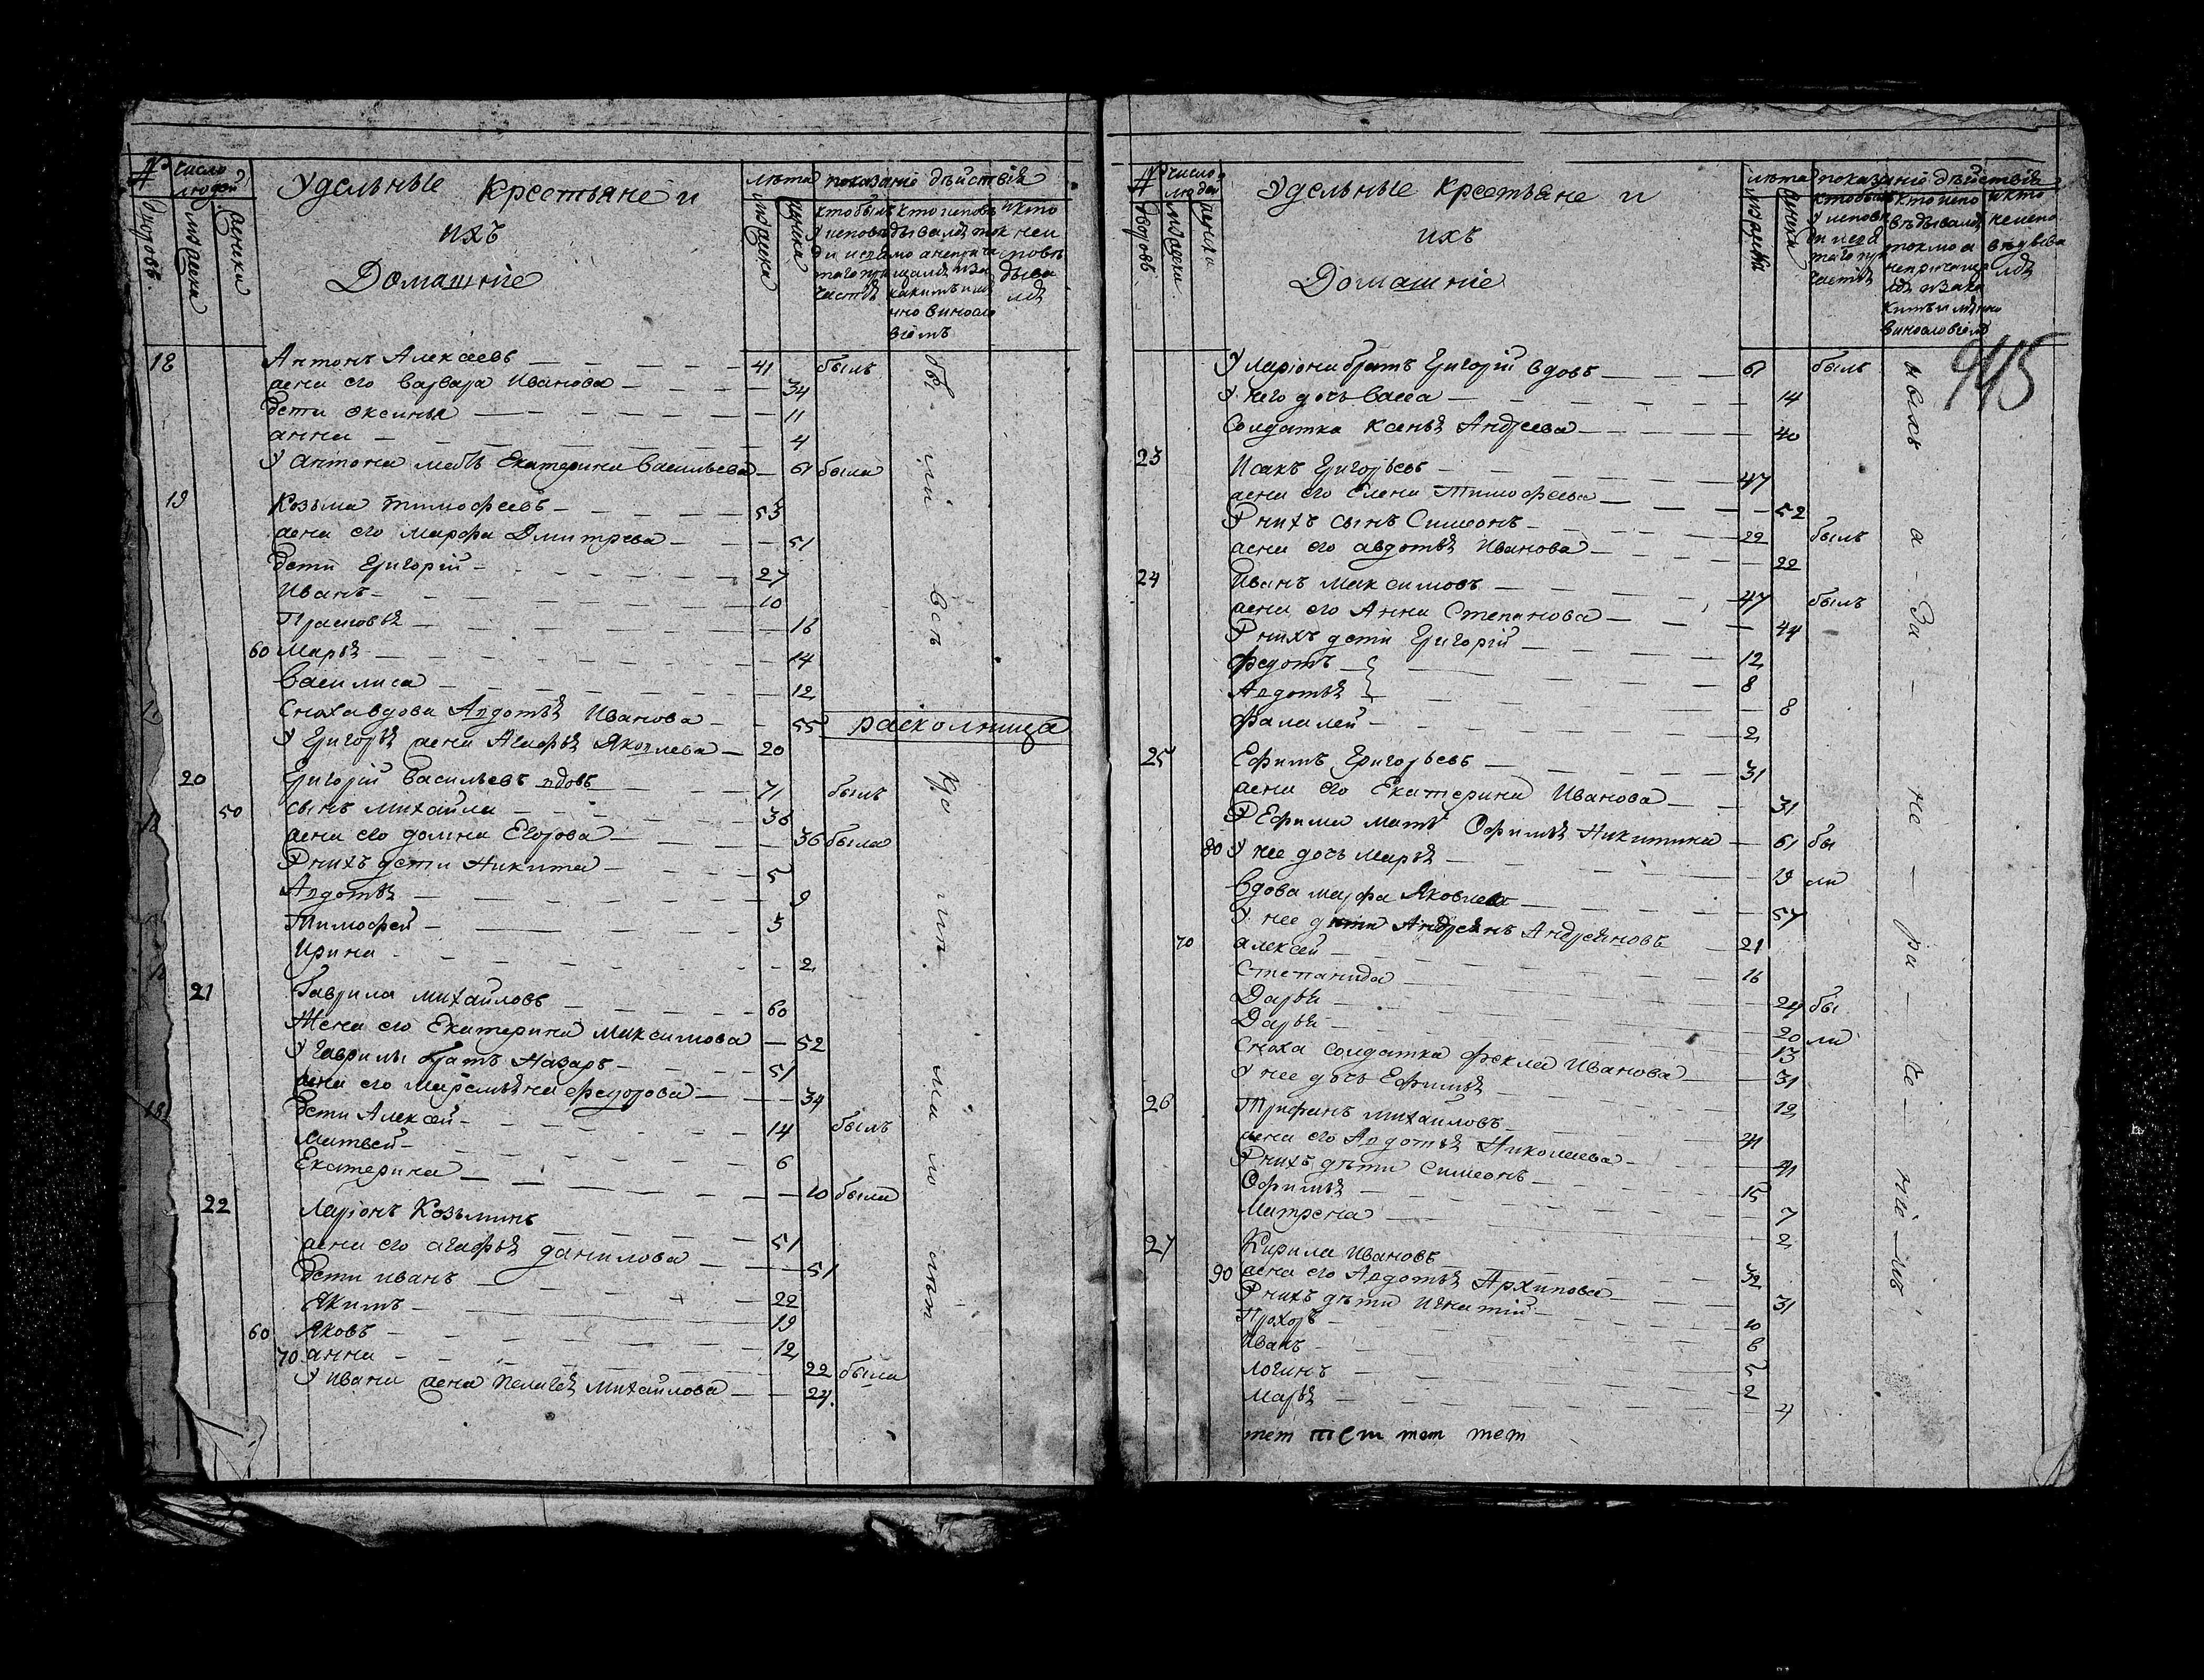 № число людей
дворовъ
мужеска
женска
Удельные крестьяне и
ихъ
Домашніе
лѣта
мужеска
женска
показаніе дѣйствія
кто былъ у исповѣди и святаго причастія
кто исповѣдывался токмо а непричащался и за какимъ именно винословіемъ
и кто неисповѣдывался
18 Антонъ Алексеевъ 41 былъ
жена его варвара Иванова 34
Дети оксинья 11
анна 4
У антона мать Екатерина Васильева 61 была
19 Козьма тимофеевъ 53
жена его марфа Дмитрева 51
Дети Григорій 27
Иванъ 10
Прасковья 16
60 Марья 14
Василиса 12
Сноха вдова Авдотья Иванова 55 расколница
У Григорья жена Агафья Яковлева 20
20 Григорій Васильевъ вдовъ 71 былъ
50 сынъ михайла 36
жена его домна Егорова 36 была
У нихъ дети Никита 5
Авдотья 9
Тимофей 3
Ирина 2
21 Гаврила михайловъ 60
Жена его Екатерина Максимова 52
У гаврилы братъ Назаръ 51
жена его федорова 34
Дети Алексей 14 былъ
Матвей 6
Екатерина 10 была
22 Ларіонъ Козьминъ 51
жена его агафья данилова 51
Дети иванъ 22
Якимъ 19
60 Яковъ 12
70 анна 22 была
У ивана жена Пелагея михайлова 24
№ число людей
дворовъ
мужеска
женска
Удельные крестьяне и
ихъ
Домашніе
лѣта
мужеска
женска
показаніе дѣйствія
кто былъ у исповѣди и святаго причастія
кто исповѣдывался токмо а непричащался и за какимъ именно винословіемъ
и кто неисповѣдывался
945
У ларіона братъ Григорій вдовъ 61 былъ
У него дочь васса 14
Солдатка ксенья Андреева 40
23 Исакъ Григорьевъ 47
жена его Елена Тимофеева 52
У нихъ сынъ Симеонъ 22 былъ
жена его авдотья Иванова 22
24 Иванъ максимовъ 47 былъ
жена его Анна Степанова 44
У нихъ дети Григорій 12
Федотъ 8
Авдотья 8
Фалалей 2
25 Ефимъ Григорьевъ 31
жена его Екатерина Иванова 31
У Ефима мать Офимья Никитина 61 бы
80 У нее дочь марья 19 ли
Вдова марфа Яковлева 57
У нее дети Андреянъ Андреяновъ 21
70 алексей 16
Степанида 24 бы
Дарья 20 ли
Дарья 13
Сноха солдатка Фекла Иванова 31
У нее дочь Ефимья 12
26 Трифанъ михайловъ 41
жена его Авдотья Николаева 41
У нихъ дѣти симеонъ 15
Офимья 7
Матрена 2
27 Кирила Ивановъ 32
90 жена его Авдотья Архипова 31
У нихъ дѣти игнатій 10
Прохоръ 6
Иванъ 5
логинъ 2
Марья 4
тет тет тет тет